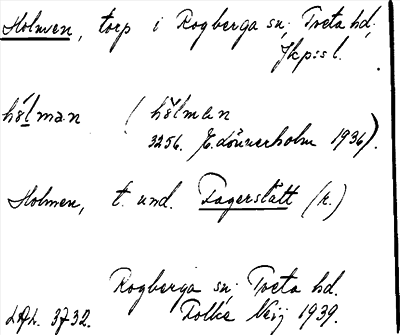 Holmen, torp i Rogberga sn; Tveta hd;
Jkp:s l.
hölman ( hölman
3256. E. Lönnerholm 1936).
Holmen, t. und. Fagerslätt (k.)
Rogberga sn; Tveta hd.
3732. Folke Neij 1939.